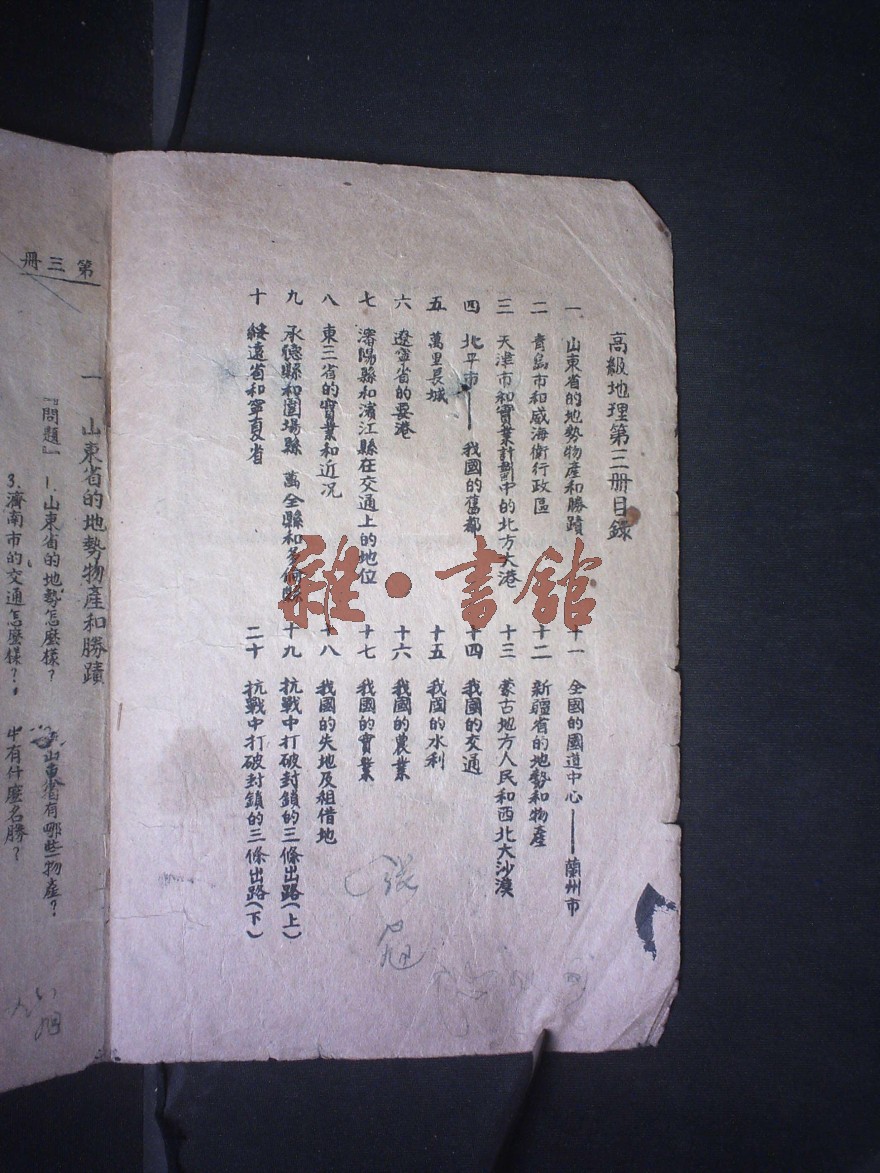 高級地理第三冊目錄
一 山東省的地勢物產和勝蹟
二 青島市和威海衛行政區
三 天津市和實業計劃中的北方大港
四 北平市——我國的舊都
五 萬里長城
六 遼寧省的要港
七 瀋陽縣和濱江縣在交通上的地位
八 東三省的實業和近況
九 承德縣和圍場縣 萬全縣和多倫縣
十 綏遠省和寧夏省
十一 全國的國道中心——蘭州市
十二 新疆省的地勢和物產
十三 蒙古地方人民和西北大沙漠
十四 我國的交通
十五 我國的水利
十六 我國的農業
十七 我國的實業
十八 我國的失地及租借地
十九 抗戰中打破封鎖的三條出路(上)
二十 抗戰中打破封鎖的三條出路(下)
雜·書館
第三冊
一 山東省的地勢物產和勝蹟
『問題』 1.山東省的地勢怎麼樣? 山東省有哪些物產?
3.濟南市的交通怎麼樣? 中有什麼名勝?